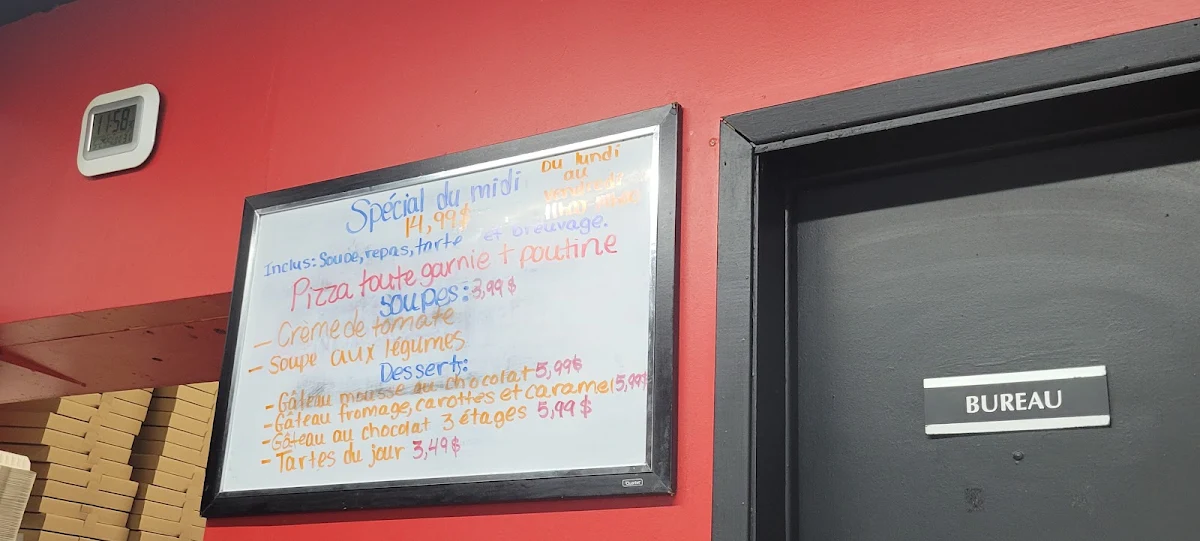 11:58
Spécial du midi
14,99$
Du lundi
au
vendredi
Inclus: Soupe, repas, tarte et breuvage.
Pizza toute garnie + poutine
Soupes: 3,99 $
- Crème de tomate
- Soupe aux légumes
Desserts:
- Gâteau mousse au chocolat 5,99$
- Gâteau fromage, carottes et caramel 5,99$
- Gâteau au chocolat 3 étages 5,99 $
- Tartes du jour 3,49$
BUREAU